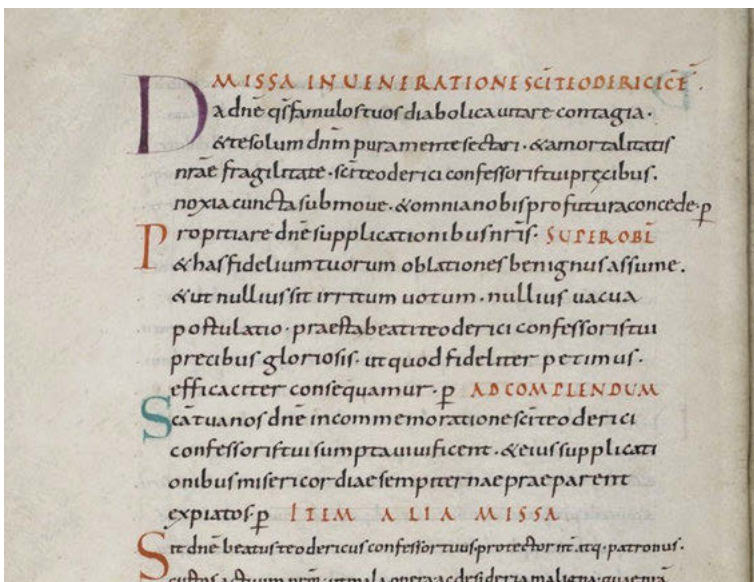 MISSA IN UENERATIONE SC̄I TEODERICI C̄F̄.
Da dn̄e q̄s famulos tuos diabolica uitare contagia.
& te solum dn̄m pura mente sectari. & a mortalitatis
nr̄ae fragilitate. sc̄i teoderici confessoris tui pręcibus.
noxia cuncta submoue. & omnia nobis profutura concede. p̄
Propitiare dn̄e supplicationibus nr̄is. SUPER OBL̄
& has fidelium tuorum oblationes benignus assume.
& ut nullius sit irritum uotum. nullius uacua
postulatio. praesta beati teoderici confessoris tui
precibus gloriosis. ut quod fideliter petimus.
efficaciter consequamur. p̄ AD COMPLENDUM
Sc̄a tua nos dn̄e in commemoratione sc̄i teoderici
confessoris tui sumpta uiuificent. & eius supplicati
onibus misericordiae sempiternae praeparent
expiatos. p̄ ITEM ALIA MISSA
Sit dn̄e beatus teodericus confessor tuus protector nr̄ atq. patronus.
custos actuum nr̄m. ut mala opera ac desideria maligna quae nr̄a